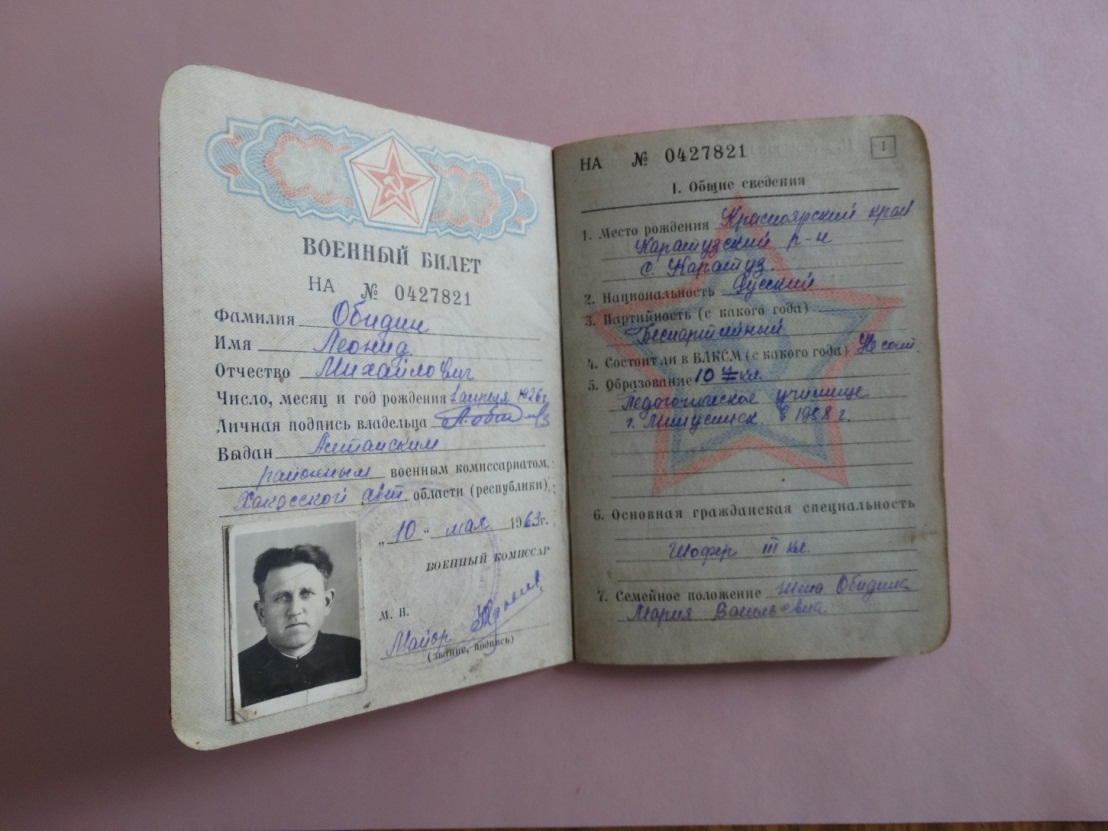 ВОЕННЫЙ БИЛЕТ
НА № 0427821
Фамилия Обидин
Имя Леонид
Отчество Михайлович
Число, месяц и год рождения 1 апреля 1926 г
Личная подпись владельца
Выдан Аскизским
районным военным комиссариатом,
Хакасской авт области (республики),
„10" мая 1963 г.
ВОЕННЫЙ КОМИССАР
М. П.
Майор
(звание, подпись)
НА № 0427821
1
1. Общие сведения
1. Место рождения Красноярский край
Каратузский р-н
с. Каратуз.
2. Национальность Русский
3. Партийность (с какого года)
Беспартийный
4. Состоит ли в ВЛКСМ (с какого года) Не сост.
5. Образование 10 кл.
Педагогическое училище
г. Минусинск в 1958 г.
6. Основная гражданская специальность
Шофер III кл.
7. Семейное положение жена Обидина
Мария Васильевна